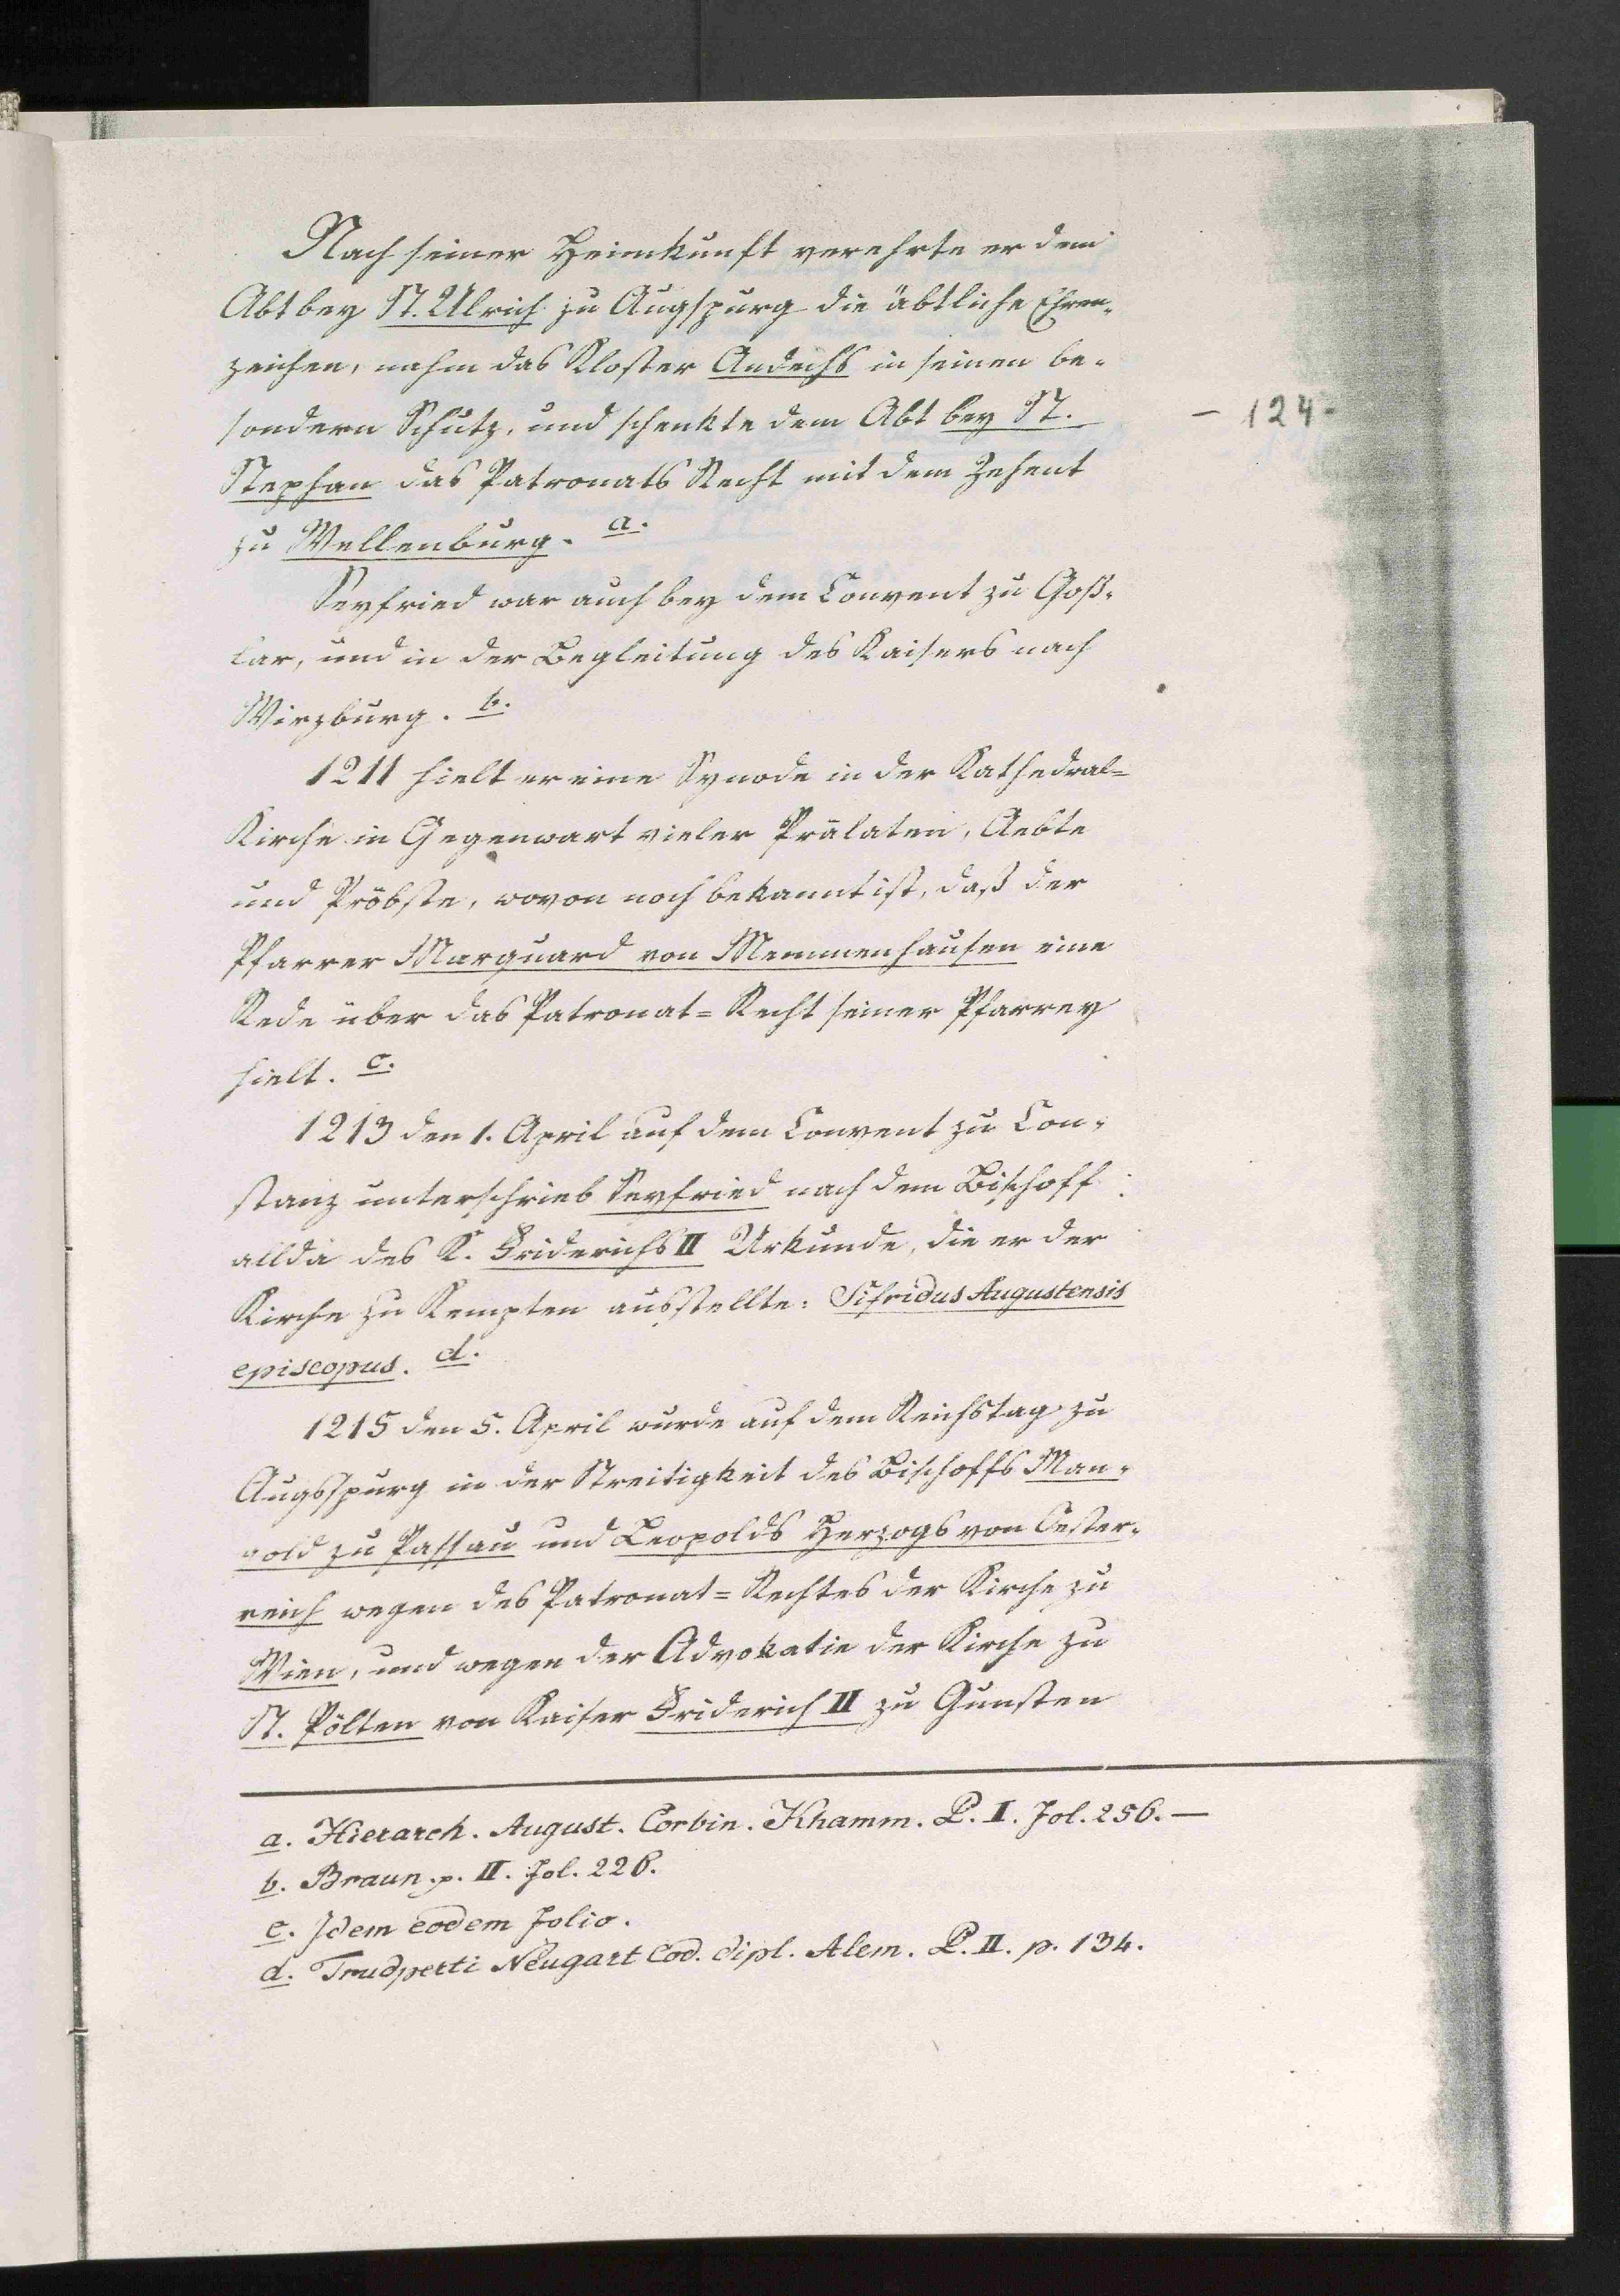 Nach seiner Heimkunft verehrte er dem
Abt bey St. Ulrich zu Augspurg die äbtliche Ehren-
zeichen, nahm das Kloster Andechs in seinen be-
sondern Schutz, und schenkte dem Abt bey St.
- 124 -
Stephan das Patronats Recht mit dem Zehent
zu Wellenburg. a.
Seyfried war auch bey dem Convent zu Goß-
lar, und in der Begleitung des Kaisers nach
Wirzburg. b.
1211 hielt er eine Synode in der Kathedral=
Kirche in Gegenwart vieler Prälaten, Aebte
und Pröbste, wovon noch bekannt ist, daß der
Pfarrer Marquard von Memmenhausen eine
Rede über das Patronat=Recht seiner Pfarrey
hielt. c.
1213 den 1. April auf dem Convent zu Con-
stanz unterschrieb Seyfried nach dem Bischoff
allda des K. Friderichs II Urkunde, die er der
Kirche zu Kempten ausstellte: Sifridus Augustensis
episcopus. d.
1215 den 5. April wurde auf dem Reichstag zu
Augsspurg in der Streitigkeit des Bischoffs Man-
gold zu Passau und Leopolds Herzogs von Oester-
reich wegen des Patronat=Rechtes der Kirche zu
Wien, und wegen der Advokatie der Kirche zu
St. Pölten von Kaiser Friderich II zu Gunsten
a. Hierarch. August. Corbin. Khamm. P. I. Fol. 256. —
b. Braun. p. II. Fol. 226.
c. Idem eodem Folio.
d. Trudperti Neugart Cod. dipl. Alem. P. II. p. 134.